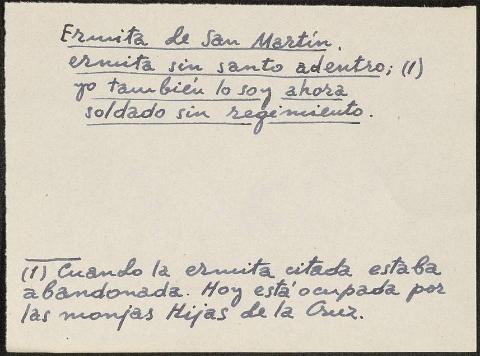 Ermita de San Martín.
ermita sin santo adentro; (1)
yo también lo soy ahora
soldado sin regimiento.
(1) Cuando la ermita citada estaba
abandonada. Hoy está ocupada por
las monjas Hijas de la Cruz.